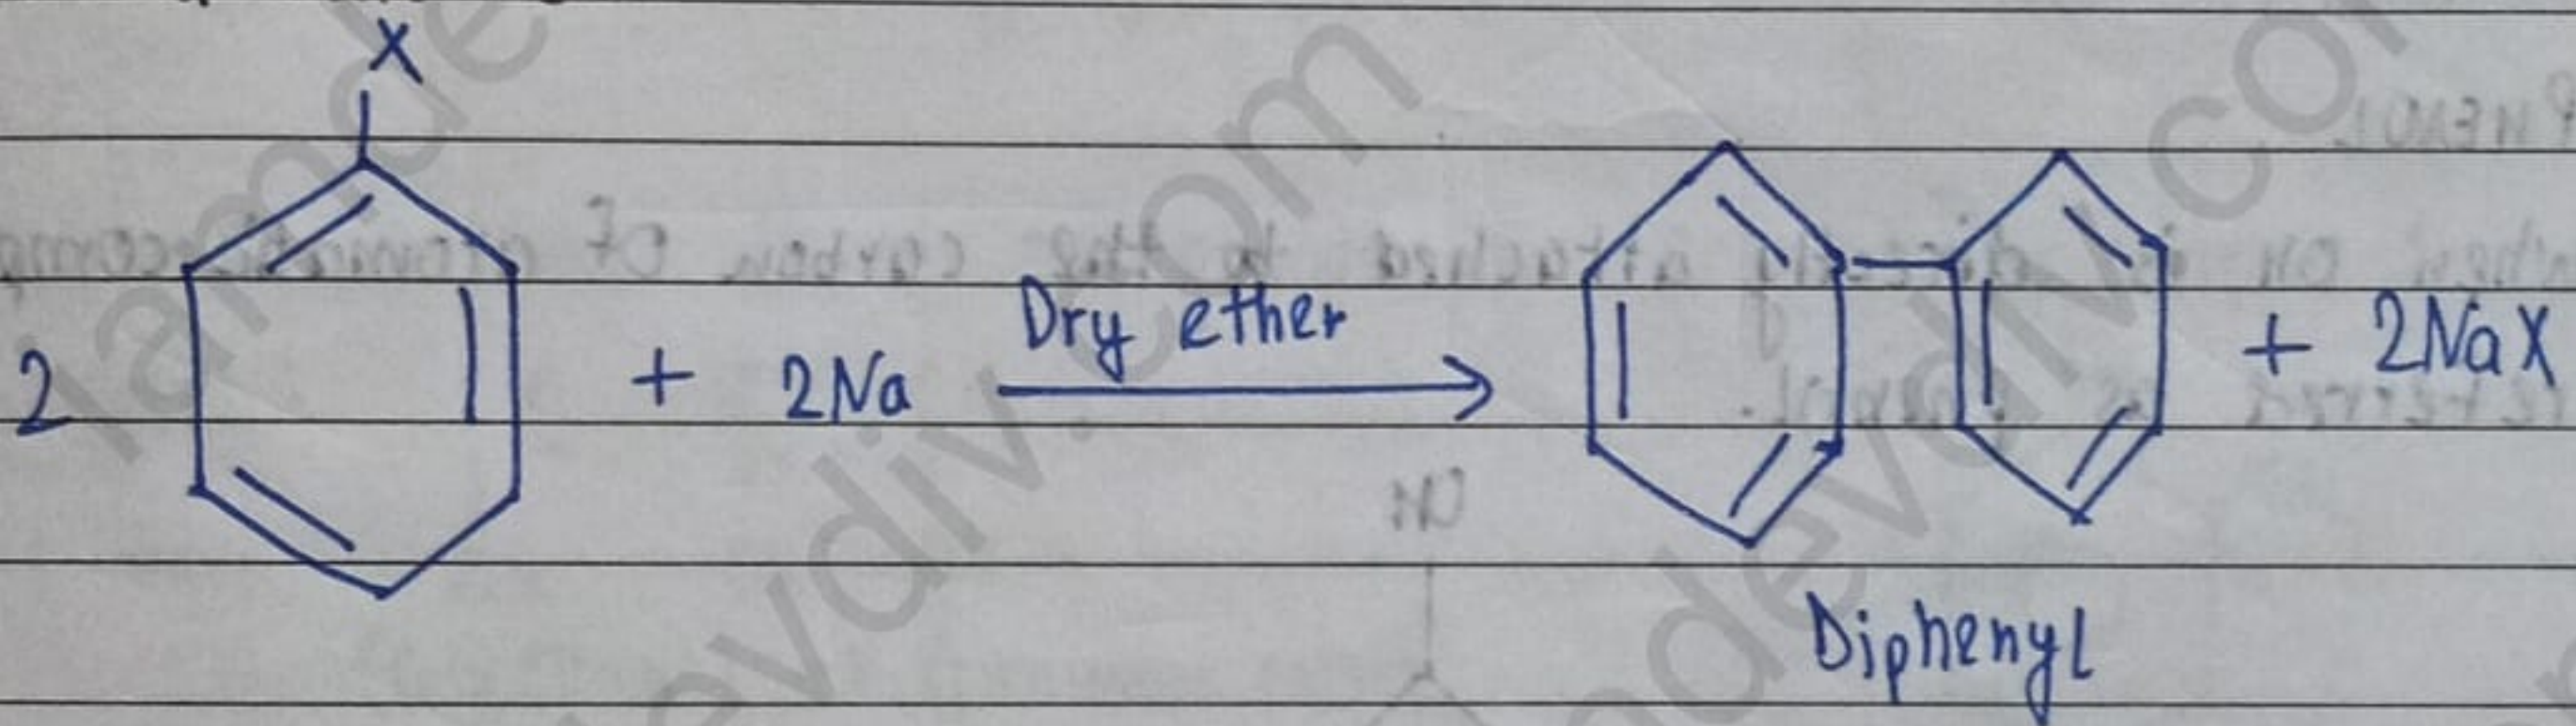 X
2 + 2Na Dry ether + 2NaX
Diphenyl